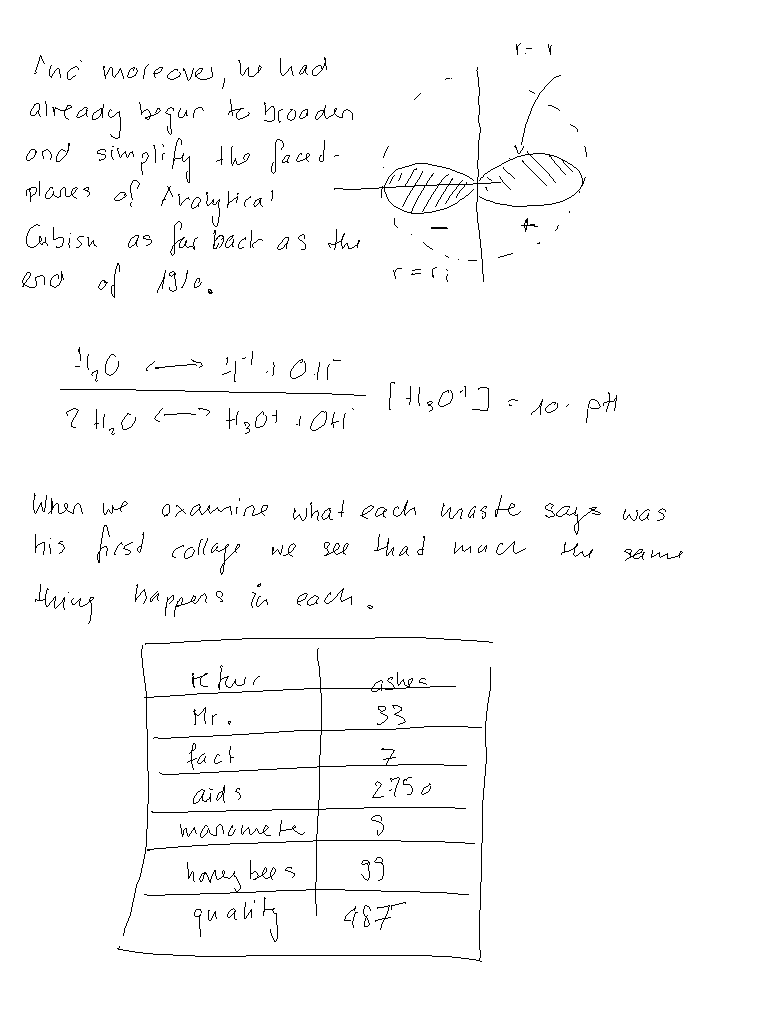 And moreover, he had
already begun to broaden
and simplify the facet-
planes of Analytical
Cubism as far back as the
end of 1910.
r = r
− +
r = ri
H₂O ⟷ H⁺ + OH⁻
2 H₂O ⟷ H₃O⁺ + OH⁻ [H₃O⁺] = 10⁻ pH
When we examine what each master says was
his first collage we see that much the same
thing happens in each.
return ashes
Mr. 33
fact 7
aids 2750
manometer
honeybees 99
quality 487